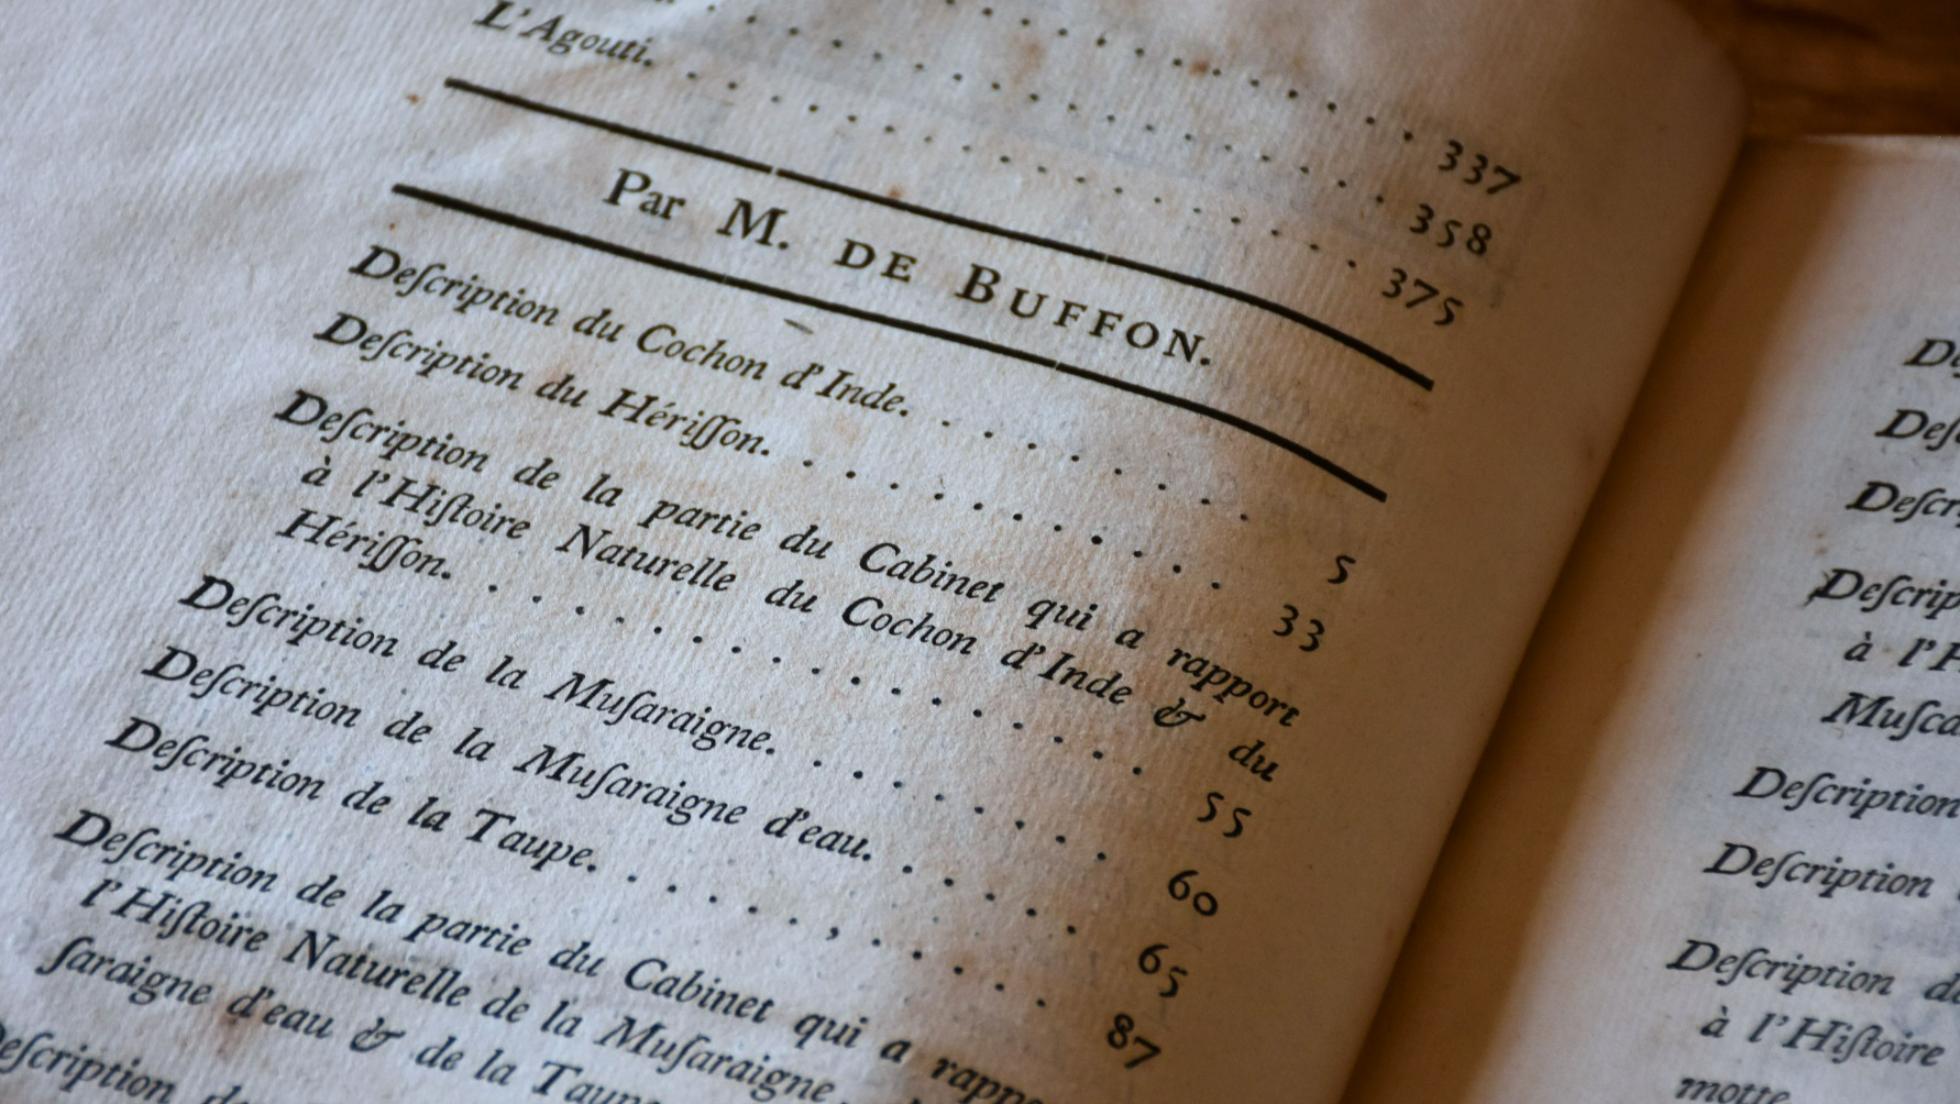 337
358
L'Agouti. 375
Par M. DE BUFFON.
Deſcription du Cochon d'Inde. 5
Deſcription du Hériſſon. 33
Deſcription de la partie du Cabinet qui a rapport
à l'Hiſtoire Naturelle du Cochon d'Inde & du
Hériſſon. 55
Deſcription de la Muſaraigne. 60
Deſcription de la Muſaraigne d'eau. 65
Deſcription de la Taupe. 87
Deſcription de la partie du Cabinet qui a rappo
l'Hiſtoire Naturelle de la Muſaraigne,
ſaraigne d'eau & de la Taupe
eſcription de
Deſ
Deſcr
Deſcrip
à l'H
Muſca
Deſcription
Deſcription
Deſcription d
à l'Hiſtoire
motte